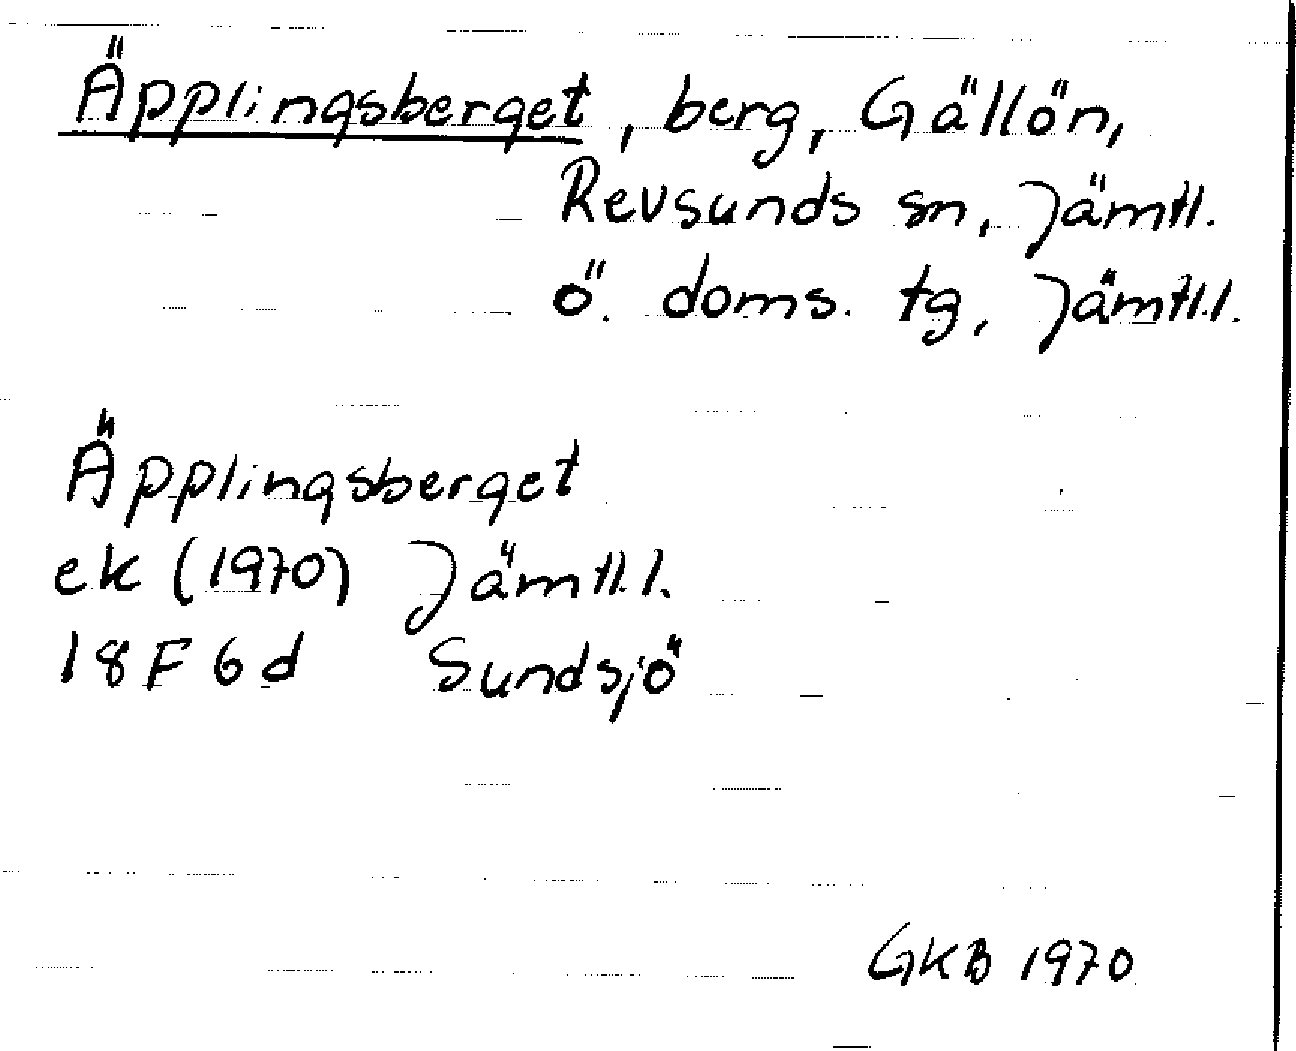 Äpplingsberget, berg, Gällön,
Revsunds sn, Jämtl.
ö. doms. tg, Jämtl.l.
Äpplingsberget
ek (1970) Jämtl.l.
18F6d Sundsjö
GKB 1970